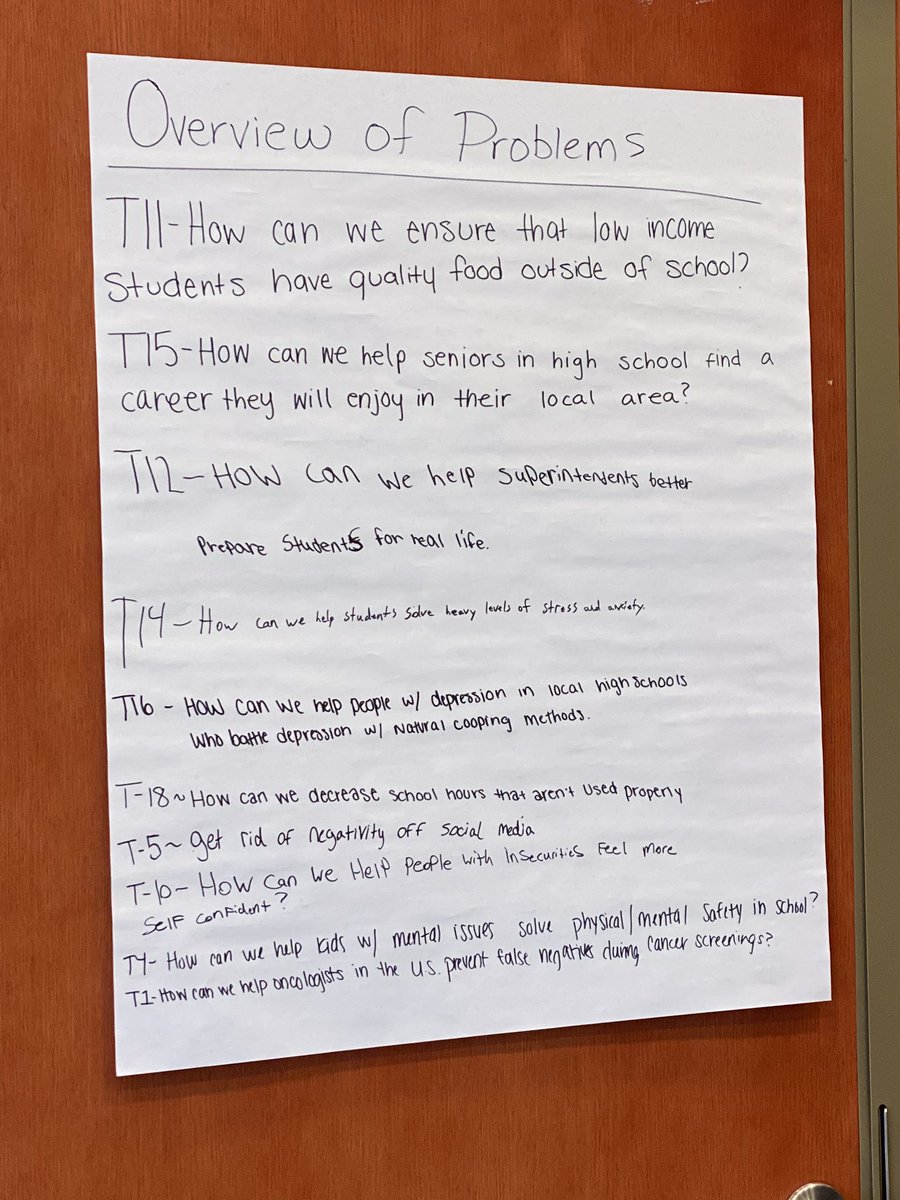 Overview of Problems
T11-How can we ensure that low income
Students have quality food outside of school?
T15-How can we help seniors in high school find a
career they will enjoy in their local area?
T12-How can we help superintendents better
Prepare Students for real life.
T14-How can we help students solve heavy levels of stress and anxiety.
T16 - How can we help people w/ depression in local high schools
who battle depression w/ Natural cooping methods.
T-18~How can we decrease school hours that aren't used properly
T-5~ get rid of negativity off social media
T-10- How can we Help People with Insecurities Feel More
Self confident?
T4- How can we help kids w/ mental issues solve physical/mental safety in school?
T1-How can we help oncologists in the U.S. prevent false negatives during cancer screenings?